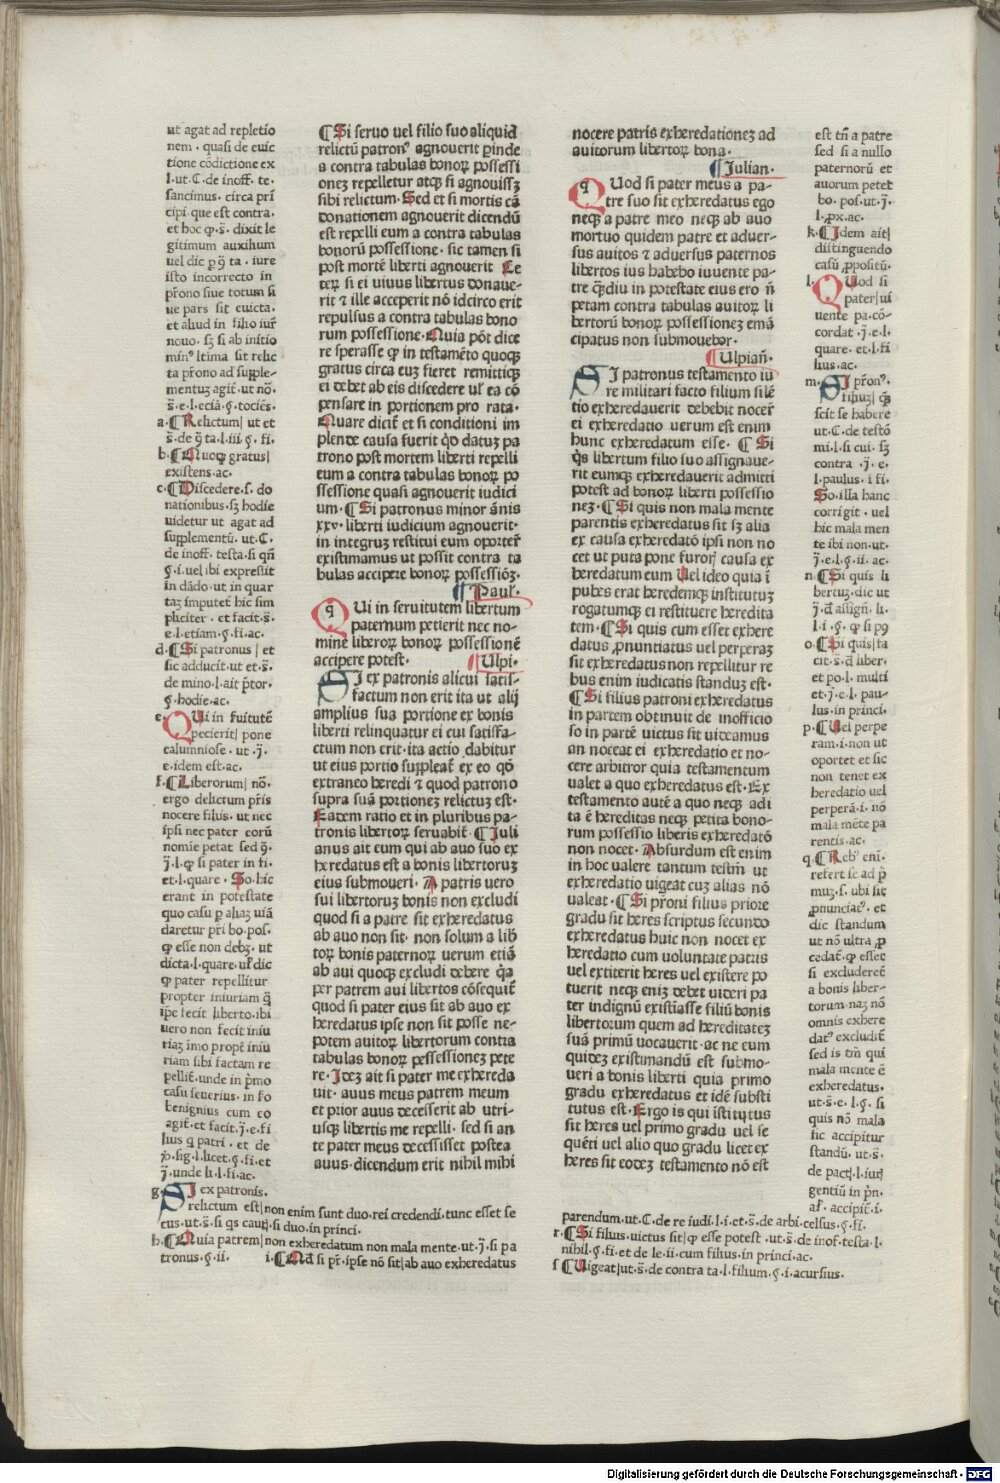 ut agat ad repletio
nem . quasi de euic
tione cōdictione ex
l.ut.C.de inoff. te.
sancimus. circa pri
cipi que est contra.
et hoc ꝙ.s̄. dixit le
gitimum auxilium
uel dic ꝑ ꝯ ta . iure
isto incorrecto in
pr̄ono siue totum si
ue pars sit euicta.
et aliud in filio iur̄
nouo. sꝫ si ab initio
min⁹ ltima sit relic
ta pr̄ono ad supple-
mentuꝫ agit̄. ut nō.
s̄.e.l.eciā.§.tociēs.
a.¶Relictum| ut et
s̄.de ꝯ ta.l.iii.§.fi.
b.¶Quoqꝫ gratus|
existens.ac.
c.¶Discedere.s.do
nationibus.sꝫ hodie
uidetur ut agat ad
supplementū.ut.C.
de inoff. testa.si qn̄
§.i.uel ibi expressit
in dādo.ut in quar
taꝫ imputet̄ hic sim
pliciter.et facit.s̄.
e.l.etiam.§.fi.ac.
d.¶Si patronus| et
sic adducit.ut et.s̄.
de mino.l.ait p̄tor.
§.hodie.ac.
e. QUi in ſuitutē
pecierit| pone
calumniose . ut .j̄.
e.idem est.ac.
f.¶Liberorum| nō.
ergo delictum pr̄is
nocere filiis. ut nec
ipsi nec pater eorū
nomie petat sed ꝯ.
j̄.l.ꝙ si pater in fi.
et.l.quare . So.hic
erant in potestate
quo casu ꝑ aliaꝫ uiā
daretur pr̄i bo.pos.
ꝙ esse non debꝫ. ut
dicta.l.quare.ul̄ dic
ꝙ pater repellitur
propter iniuriam q̄
ip̄e fecit liberto.ibi
uero non fecit iniu
riaꝫ īmo propt̄ iniu
riam sibi factam re
pellit̄.unde in p̄mo
casu seuerius. in ſo
benignius cum eo
agit̄.et facit.j̄.e.si
lius q̄ patri . et de
ꝓ.sig.l.licet.§.fi.et
j̄.unde li.l.fi.ac.
g. SI ex patronis.
relictum est|non enim sunt duo.rei credendi.tunc esset se
cus.ut.s̄.si qs caut̄.si duo.in princi.
h.¶Quia patrem|non exheredatum non mala mente.ut.j̄.si pa
tronus.§.ii. i.¶Nā si pr̄.ipse nō sit|ab auo exheredatus
¶Si seruo uel filio suo aliquid
relictū patron⁹ agnouerit ꝑinde
a contra tabulas bonoꝝ possessi
oneꝫ repelletur atqꝫ si agnouissꝫ
sibi relictum. Sed et si mortis cā
donationem agnouerit dicendū
est repelli eum a contra tabulas
bonorū possessione . sic tamen si
post mortē liberti agnouerit Ce
terꝝ si ei uiuus libertus donaue-
rit ⁊ ille acceperit nō idcirco erit
repulsus a contra tabulas bono
rum possessione. Quia pōt dice
re sperasse ꝙ in testamēto quoqꝫ
gratus circa euꝫ fieret remittiqꝫ
ei debet ab eis discedere ul̄ ea cō
pensare in portionem pro rata.
Quare dicit̄ et si conditioni im
plende causa fuerit qd̄ datuꝫ pa
trono post mortem liberti repelli
eum a contra tabulas bonoꝝ po
ssessione quasi agnouerit iudici
um. ¶Si patronus minor ānis
xxv. liberti iudicium agnouerit.
in integruꝫ restitui eum oporter̄
existimamus ut possit contra ta
bulas accipere bonoꝝ possessiōꝫ.
¶Paul⁹.
QUi in seruitutem libertum
paternum petierit nec no-
mine liberoꝝ bonoꝝ possessionē
accipere potest. ¶Ulpi.
SI ex patronis alicui satis-
factum non erit ita ut alij
amplius sua portione ex bonis
liberti relinquatur ei cui satisfa-
ctum non erit.ita actio dabitur
ut eius portio suppleat̄ ex eo qd̄
extraneo heredi ⁊ quod patrono
supra suā portioneꝫ relictuꝫ est.
Eadem ratio et in pluribus pa-
tronis libertoꝝ seruabit̄. ¶Iuli
anus ait eum qui ab auo suo ex
heredatus est a bonis libertoruꝫ
eius submoueri. A patris uero
sui libertoruꝫ bonis non excludi
quod si a patre sit exheredatus
ab auo non sit. non solum a lib̄
toꝝ bonis paternoꝝ uerum etiā
ab aui quoqꝫ excludi debere q̄a
per patrem aui libertos cōsequit̄
quod si pater eius sit ab auo ex
heredatus ipse non sit posse ne-
potem auitoꝝ libertorum contra
tabulas bonoꝝ possessioneꝫ pete
re. Ideꝫ ait si pater me exhereda
uit. auus meus patrem meum
et prior auus decesserit ab utri-
usqꝫ libertis me repelli. sed si an
te pater meus decessisset postea
auus.dicendum erit nihil mihi
nocere patris exheredationeꝫ ad
auitorum libertoꝝ bona.
¶Julian.
QUod si pater meus a pa-
tre suo sit exheredatus ego
neqꝫ a patre meo neqꝫ ab auo
mortuo quidem patre et aduer-
sus auitos ⁊ aduersus paternos
libertos ius habebo iuuente pa-
tre qꝫdiu in potestate eius ero n̄
petam contra tabulas auitoꝝ li
bertorū bonoꝝ possessioneꝫ emā
cipatus non submouebor.
¶Ulpian̄.
SI patronus testamento iu
re militari facto filium silē
tio exheredauerit debebit nocer̄
ei exheredatio uerum est enim
hunc exheredatum esse. ¶Si
qs̄ libertum filio suo assignaue-
rit eumqꝫ exheredauerit admitti
potest ad bonoꝝ liberti possessio
neꝫ. ¶Si quis non mala mente
parentis exheredatus sit sꝫ alia
ex causa exheredatō ipsi non no
cet ut puta pone furor̄ causa ex
heredatum eum Uel ideo quia ī
pubes erat heredemqꝫ institutuꝫ
rogatumqꝫ ei restituere heredita
tem. ¶Si quis cum esset exhere
datus ꝓnuntiatus uel perperaꝫ
sit exheredatus non repellitur re
bus enim iudicatis standuꝫ est.
¶Si filius patroni exheredatus
in partem obtinuit de inofficio
so in partē uictus sit uideamus
an noceat ei exheredatio et no-
cere arbitror quia testamentum
ualet a quo exheredatus est. Ex
testamento autē a quo neqꝫ adi
ta ē hereditas neqꝫ petita bono-
rum possessio liberis exheredatō
non nocet. Absurdum est enim
in hoc ualere tantum testm̄ ut
exheredatio uigeat cuꝫ alias nō
ualeat. ¶Si pr̄oni filius priore
gradu sit heres scriptus secundo
exheredatus huic non nocet ex
heredatio cum uoluntate patris
uel extiterit heres uel existere po
tuerit neqꝫ eniꝫ debet uideri pa
ter indignū existīasse filiū bonis
libertorum quem ad hereditateꝫ
suā primū uocauerit.ac ne cum
quideꝫ existimandū est submo-
ueri a bonis liberti quia primo
gradu exheredatus et idē substi
tutus est. Ergo is qui īstitutus
sit heres uel primo gradu uel se
quēti uel alio quo gradu licet ex
heres sit eodeꝫ testamento nō est
est tn̄ a patre
sed si a nullo
paternorū et
auorum petet
bo. pos.ut.j̄.
l.ꝓx.ac.
k.¶Idem ait|
distinguendo
casū ꝓpositū.
l. QUod si
pater| ui
uente pa.cō-
cordat.j̄.e.l.
quare. et.l.fi
lius.ac.
m. SI pr̄on⁹.
filiuꝫ| q̄
scit se habere
ut.C.de testō
mi.l.si cui. sꝫ
contra .j̄.e.
l.paulus.i fi.
So.illa hanc
corrigit . uel
hic mala men
te ibi non.ut.
j̄.e.l.§.ii. ac.
n.¶Si quis li
bertuꝫ.dic ut
j̄.d̄ assign̄.li.
l.i.§. ꝙ si ꝑ9
o.¶Si quis| ta
cit.s̄.d̄ liber.
et po.l. multi
et.j̄.e.l. pau-
lus.in princi.
p.¶Uel perpe
ram.i.non ut
oportet et sic
non tenet ex
heredatio uel
perperā.i. nō
mala mēte pa
rentis.ac.
q.¶Reb⁹ eni.
refert se ad p̄
muꝫ.s. ubi sic
ꝓnunciat⁹. et
dic standum
ut nō ultra ꝓ
cedat̄.ꝙ esset
si excluderet̄
a bonis liber-
torum.naꝫ nō
omnis exhere
dat⁹ excludit̄
sed is tm̄ qui
mala mente ē
exheredatus.
ut.s̄.e.l.§. si
quis nō mala
sic accipitur
standū. ut.s̄.
de pact̄.l.iuri
gentiū in pn̄.
al̄. accipit̄.i.
parendum.ut.C.de re iudi.l.i.et.s̄.de arbi.celsus.§.fi.
r.¶Si filius.uictus sit| ꝙ esse potest .ut.s̄.de inof.testa.l.
nihil.§.fi.et de le.ii.cum filius.in princi.ac.
s ¶Uigeat|ut.s̄.de contra ta.l.filium.§.i.acursius.
Digitalisierung gefördert durch die Deutsche Forschungsgemeinschaft - DFG